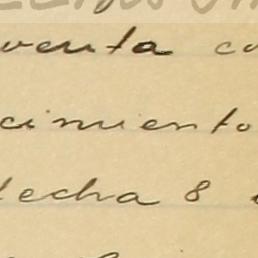 venta co
cimiento
fecha 8